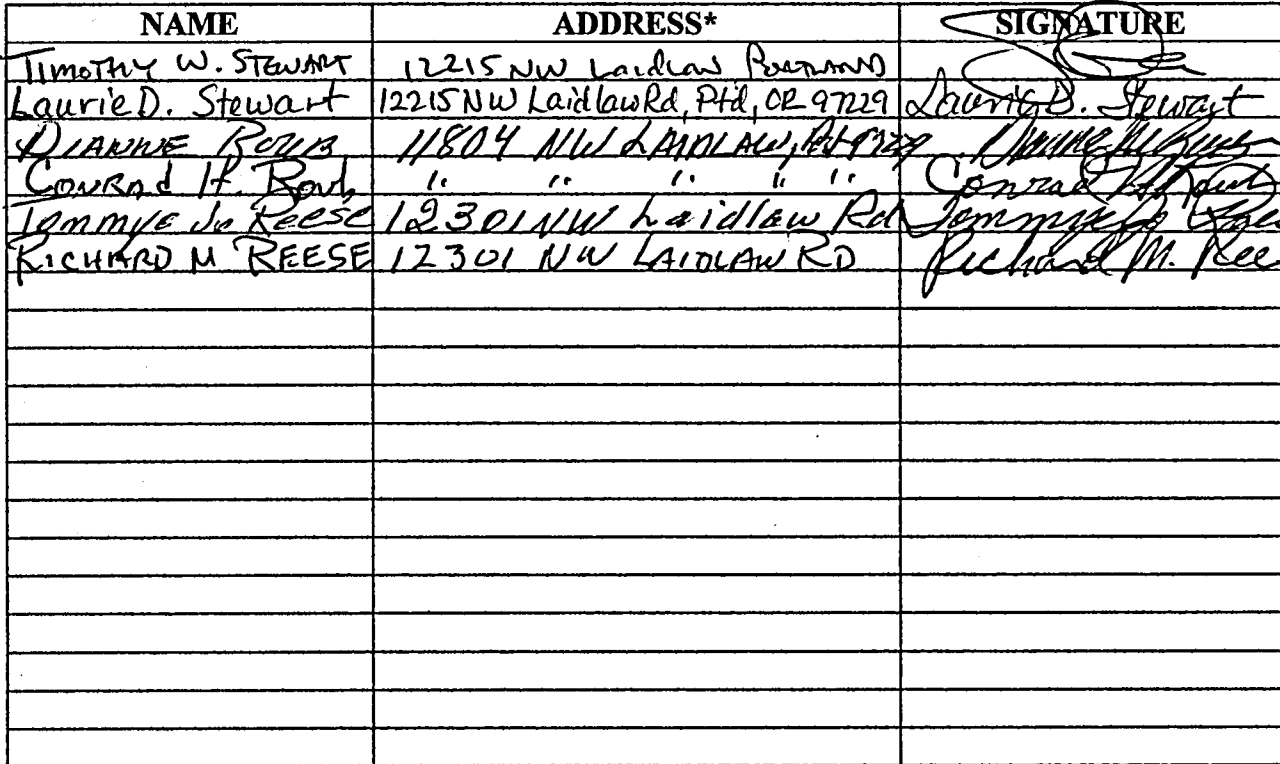 NAME ADDRESS* SIGNATURE
TIMOTHY W. STEWART 12215 NW Laidlaw PORTLAND
Laurie D. Stewart 12215 NW Laidlaw Rd, Ptd, OR 97229 Laurie D. Stewart
DIANNE 11804 NW LAIDLAW, 97229 Dianne M
Conrad H. " " " " " Conrad H.
Tommye Jo Reese 12301 NW Laidlaw Rd Tommye Jo
RICHARD M REESE 12301 NW LAIDLAW RD Richard M. Ree